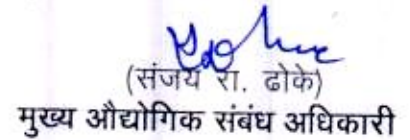 (संजय रा. ढोके)
मुख्य औद्योगिक संबंध अधिकारी